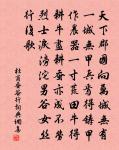 天下郡國向萬城無有
一城無甲兵焉得鑄甲
作農器一寸荒田牛得
耕牛盡耕蠶亦成不勞
烈士淚滂沱男谷女絲
行復歌
杜甫蠶谷行